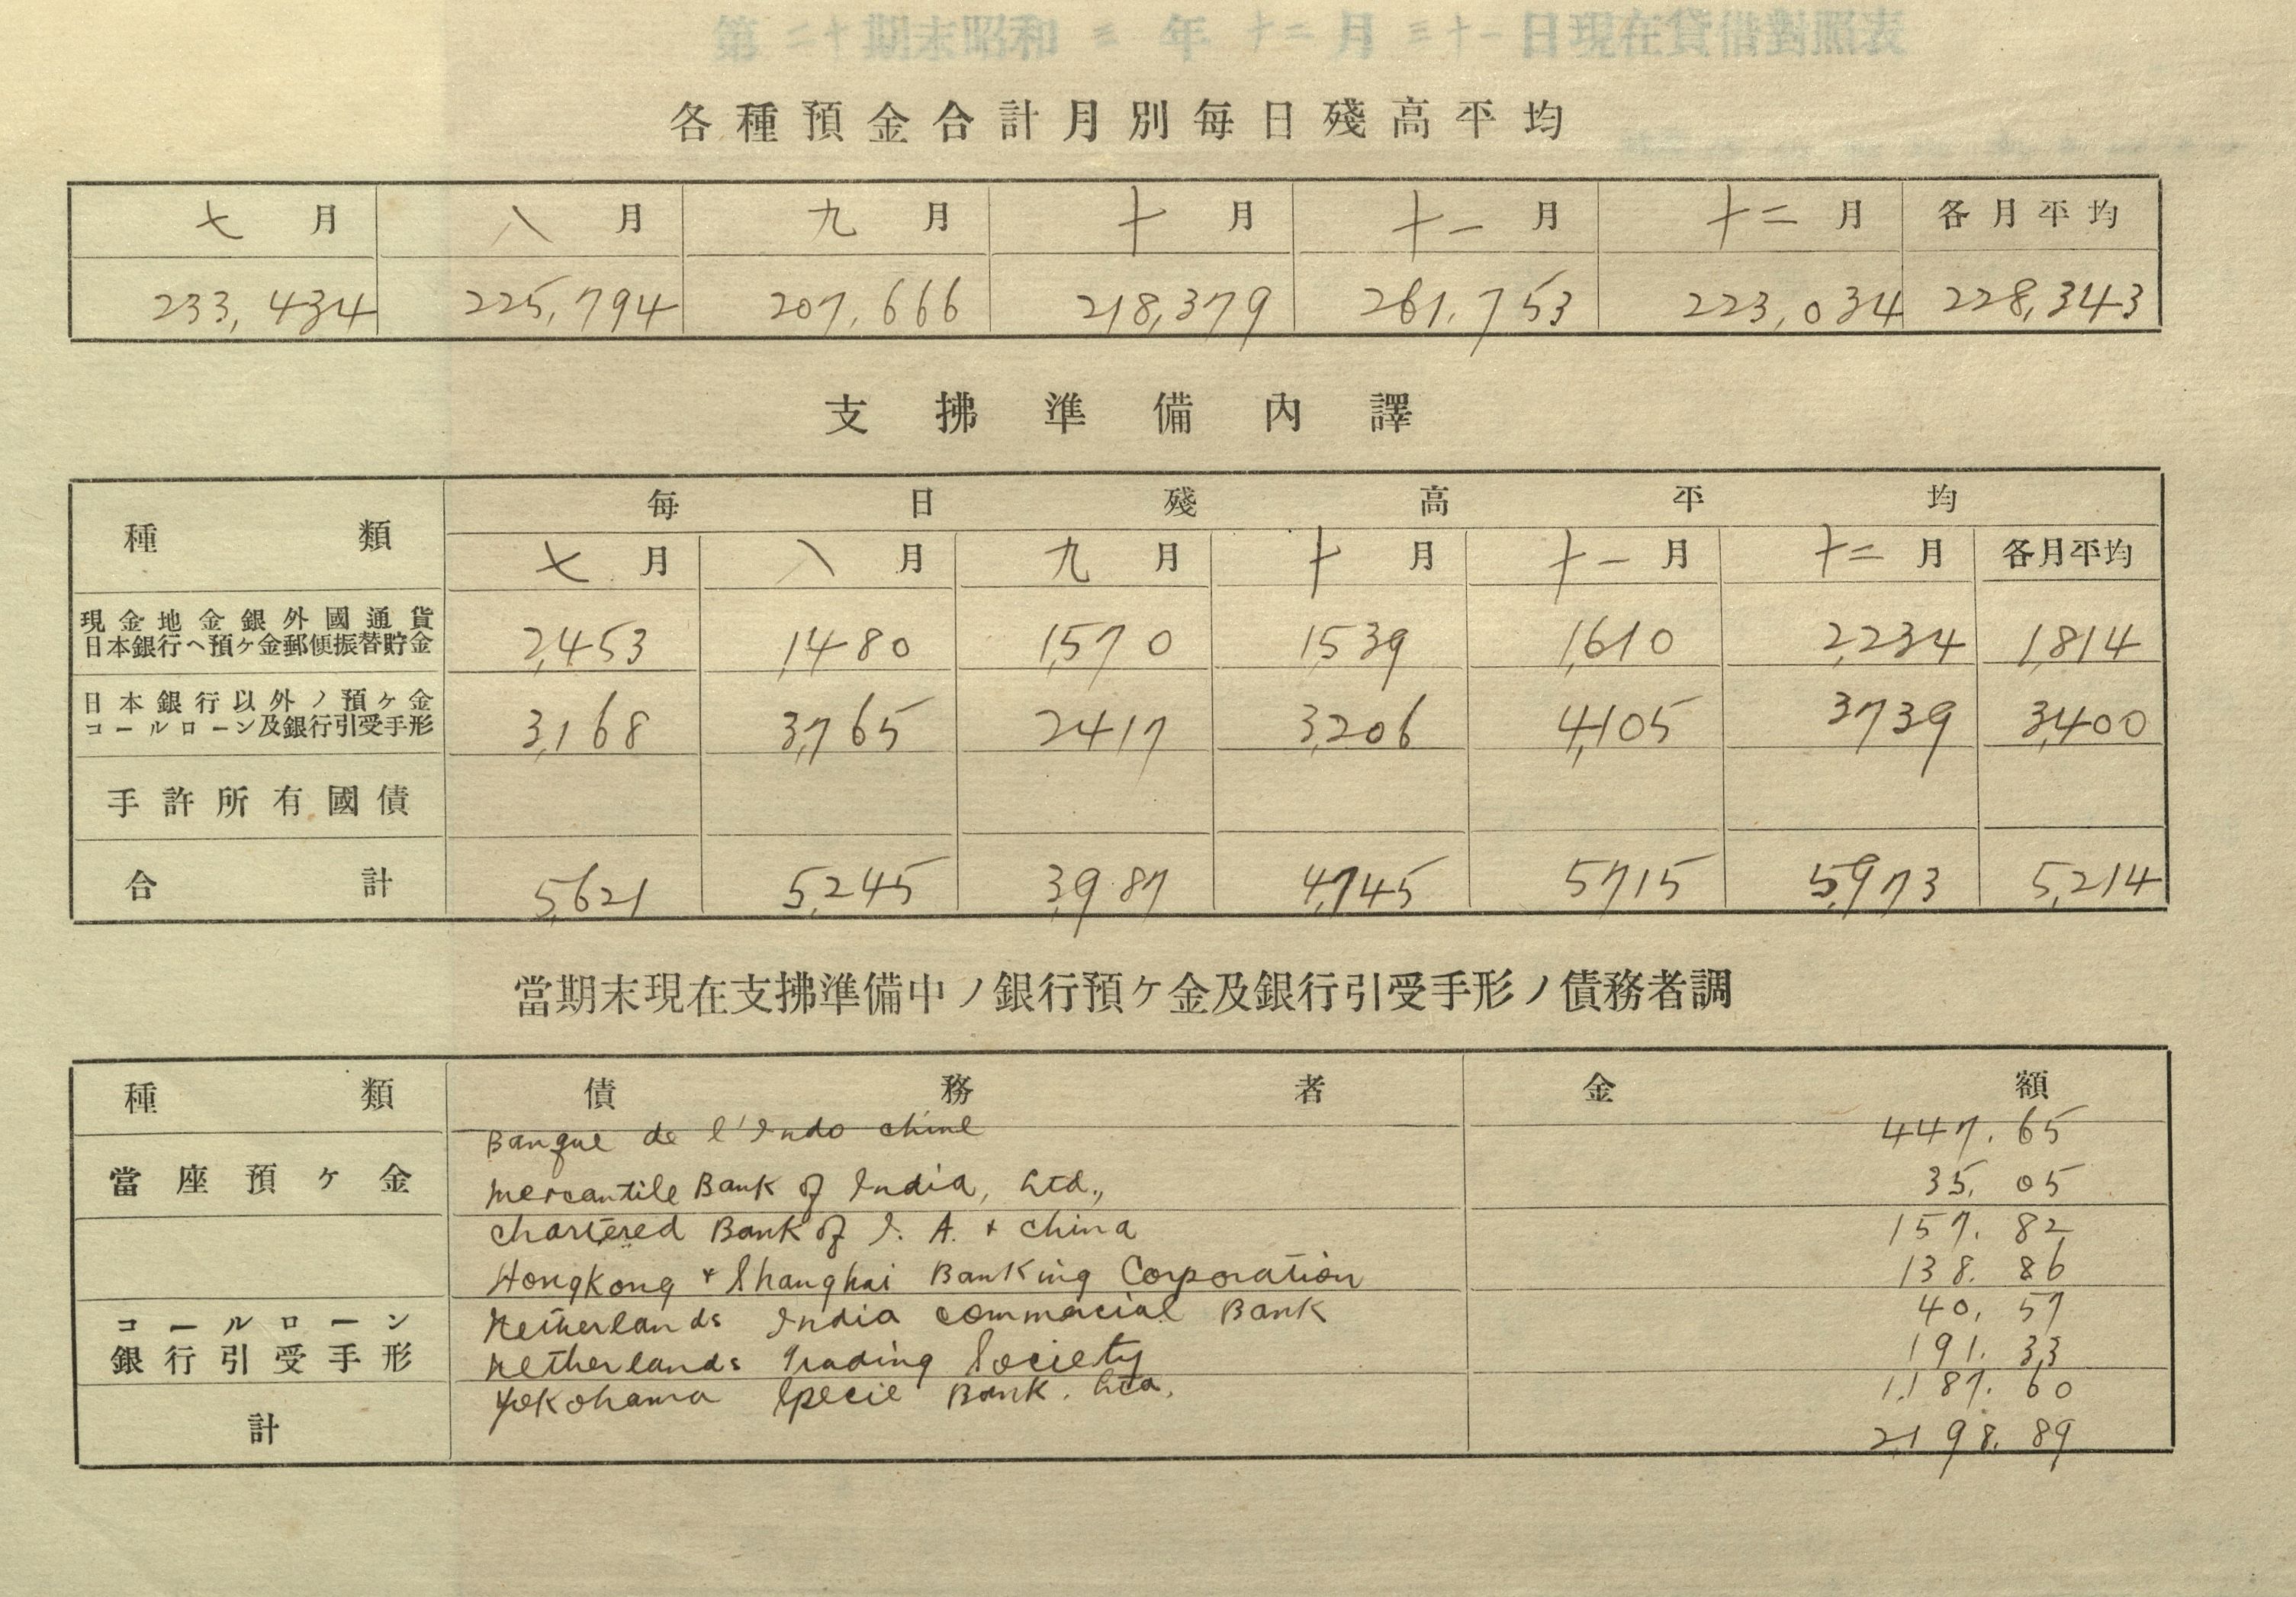 第二十期末昭和三年十二月三十一日現在貸借對照表
各種預金合計月別每日殘高平均
七月 八月 九月 十月 十一月 十二月 各月平均
233,434 225,794 207,666 218,379 261,753 223,034 228,343
支拂準備內譯
種類 每日殘高平均
七月 八月 九月 十月 十一月 十二月 各月平均
現金地金銀外國通貨
日本銀行ヘ預ケ金郵便振替貯金 2,453 1,480 1,570 1,539 1,610 2,234 1,814
日本銀行以外ノ預ケ金
コールローン及銀行引受手形 3,168 3,765 2417 3,206 4,105 3739 3,400
手許所有國債
合計 5,621 5,245 3,987 4,745 5715 5,973 5,214
當期末現在支拂準備中ノ銀行預ケ金及銀行引受手形ノ債務者調
種類 債務者 金額
Banque de l'Indo chine 447.65
當座預ケ金 Mercantile Bank of India, Ltd., 35.05
Chartered Bank of I. A. & China 157.82
HongKong & Shanghai Banking Corporation 138.86
コールローン Netherlands India Commercial Bank 40.57
銀行引受手形 Netherlands Trading Society 191.33
Yokohama Specie Bank. Ltd. 1,187.60
計 2,198.89